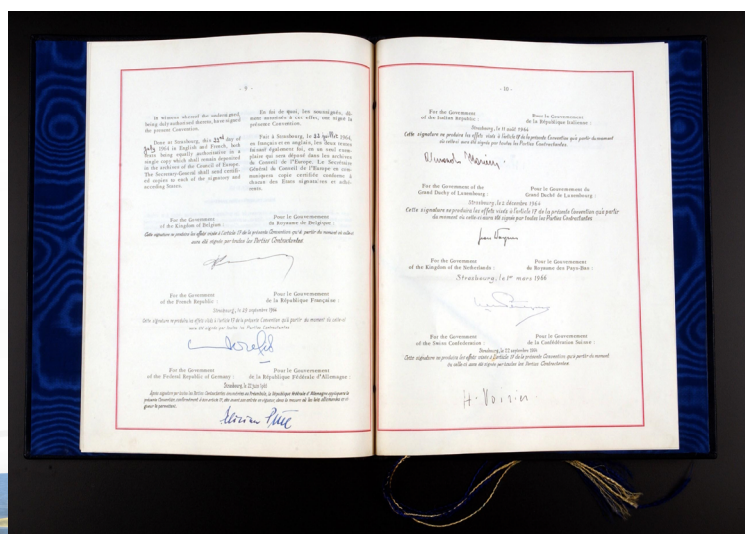 - 9 -
In witness whereof the undersigned,
being duly authorised thereto, have signed
the present Convention.
Done at Strasbourg, this 22nd day of
July 1964 in English and French, both
texts being equally authoritative in a
single copy which shall remain deposited
in the archives of the Council of Europe.
The Secretary-General shall send certifi-
ed copies to each of the signatory and
acceding States.
En foi de quoi, les soussignés, dû-
ment autorisés à cet effet, ont signé la
présente Convention.
Fait à Strasbourg, le 22 juillet 1964,
en français et en anglais, les deux textes
faisant également foi, en un seul exem-
plaire qui sera déposé dans les archives
du Conseil de l'Europe. Le Secrétaire
Général du Conseil de l'Europe en com-
muniquera copie certifiée conforme à
chacun des États signataires et adhé-
rents.
For the Government
of the Kingdom of Belgium :
Pour le Gouvernement
du Royaume de Belgique :
Cette signature ne produira les effets visés à l'article 17 de la présente Convention qu'à partir du moment où celle-ci
aura été signée par toutes les Parties Contractantes.
For the Government
of the French Republic :
Pour le Gouvernement
de la République Française :
Strasbourg, le 29 septembre 1966
Cette signature ne produira les effets visés à l'article 17 de la présente Convention qu'à partir du moment où celle-ci
aura été signée par toutes les Parties Contractantes
For the Government
of the Federal Republic of Germany :
Pour le Gouvernement
de la République Fédérale d'Allemagne :
Strasbourg, le
Après signature par toutes les Parties Contractantes au Préambule, la République Fédérale d'Allemagne appliquera la
présente Convention, conformément à son article 17, dès avant son entrée en vigueur, dans la mesure où les lois allemandes en vi-
gueur le permettent.
- 10 -
For the Government
of the Italian Republic :
Pour le Gouvernement
de la République Italienne :
Strasbourg, le 11 août 1964
Cette signature ne produira les effets visés à l'article 17 de la présente Convention qu'à partir du moment
où celle-ci aura été signée par toutes les Parties Contractantes.
For the Government of the
Grand Duchy of Luxembourg :
Pour le Gouvernement du
Grand Duché de Luxembourg :
Strasbourg, le 2 décembre 1964
Cette signature ne produira les effets visés à l'article 17 de la présente Convention qu'à partir
du moment où celle-ci aura été signée par toutes les Parties Contractantes.
For the Government
of the Kingdom of the Netherlands :
Pour le Gouvernement
du Royaume des Pays-Bas :
Strasbourg, le 1er mars 1966
For the Government
of the Swiss Confederation :
Pour le Gouvernement
de la Confédération Suisse :
Strasbourg, le 22 septembre
Cette signature ne produira les effets visés à l'article 17 de la présente Convention qu'à partir du moment
où celle-ci aura été signée par toutes les Parties Contractantes.
H. Voirier